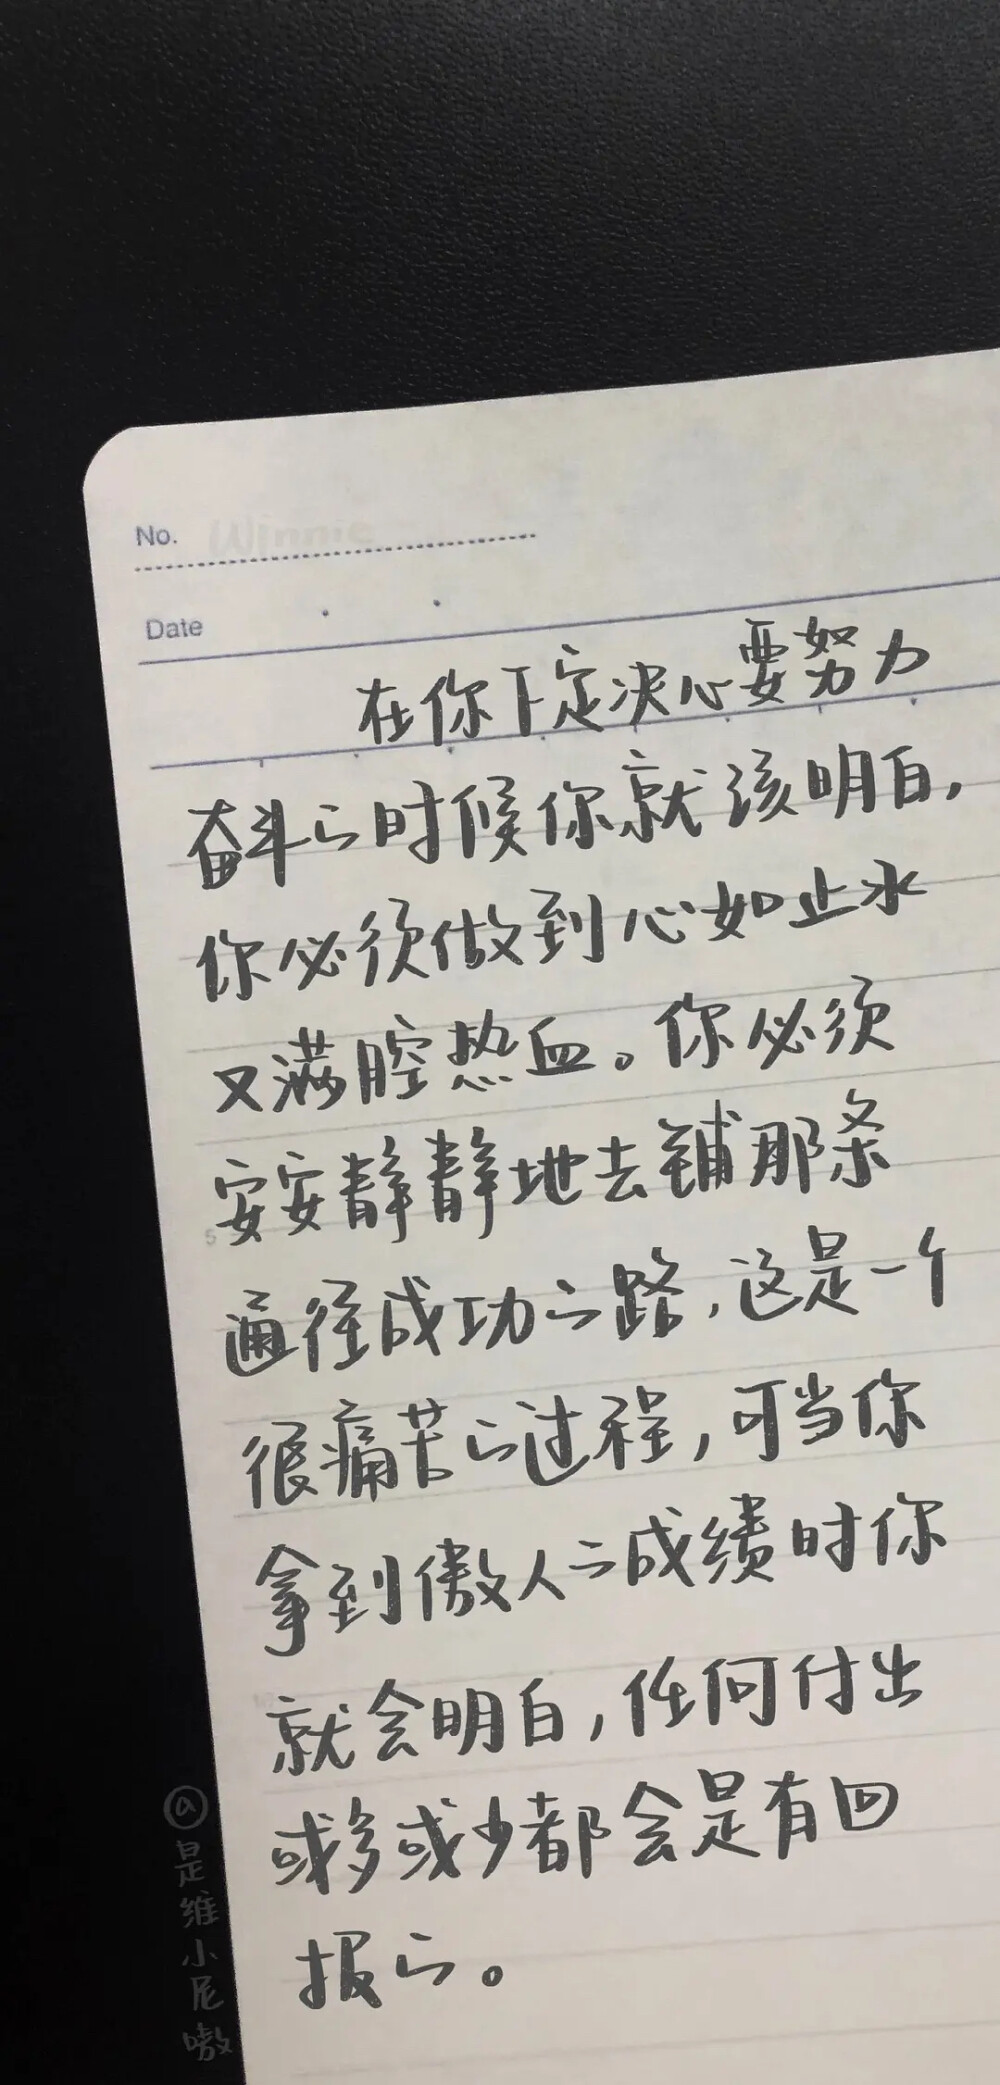 No. Winnie
Date
在你下定决心要努力
奋斗的时候你就该明白，
你必须做到心如止水
又满腔热血。你必须
安安静静地去铺那条
通往成功的路，这是一个
很痛苦的过程，可当你
拿到傲人的成绩时你
就会明白，任何付出
或多或少都会是有回
报的。
@是维小尼嗷